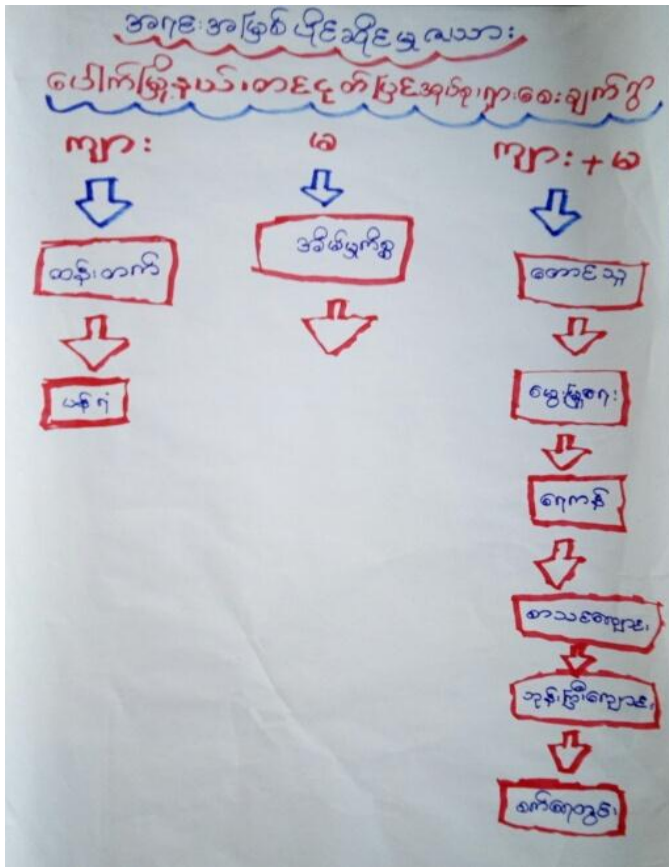 အရင်းအမြစ်ပိုင်ဆိုင်မှုဇယား
ပေါက်မြို့နယ်၊တငငုတ်ပြင်အုပ်စု၊ရှားစေးချက်ရွာ
ကျား
ထန်းတက်
ပန်းရံ
မ
အိမ်မှုကိစ္စ
ကျား + မ
တောင်သူ
မွေးမြူရေး
ရေကန်
စာသင်ကျောင်း
ဘုန်းကြီးကျောင်း
စက်ရေတွင်း